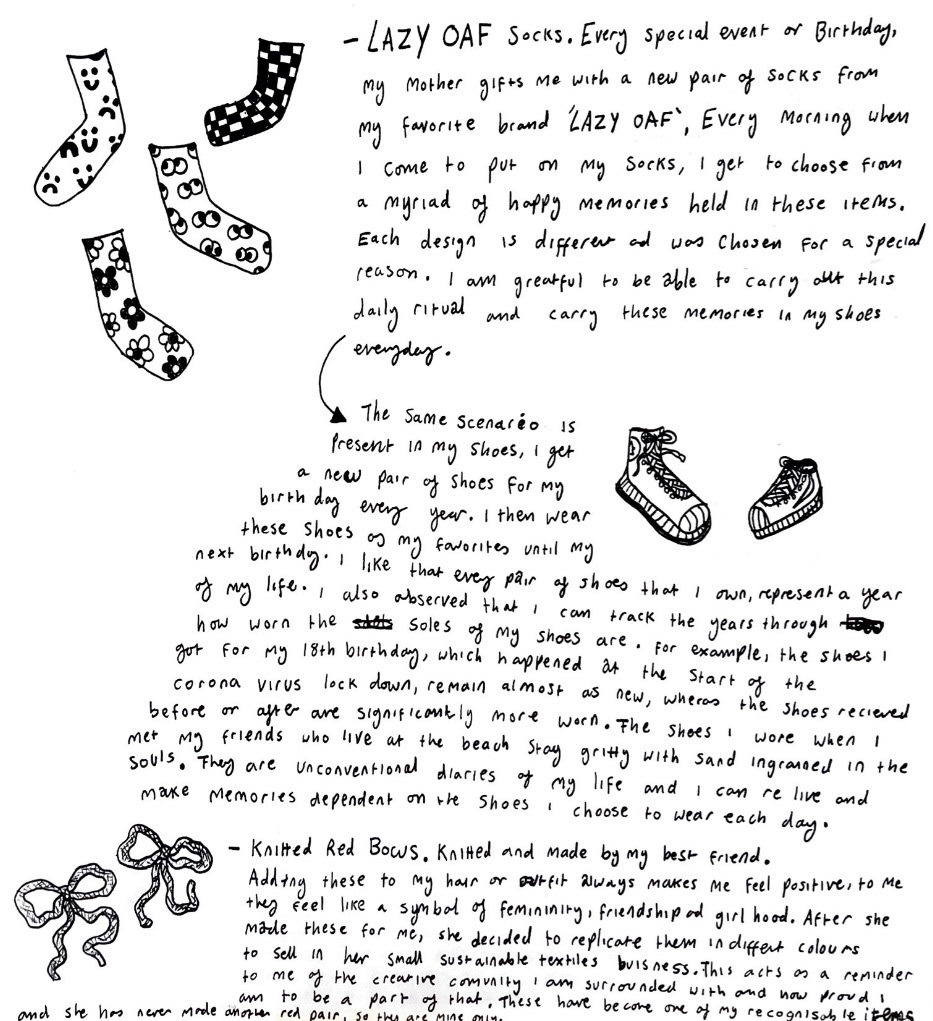 - LAZY OAF Socks. Every special event or Birthday,
my Mother gifts me with a new pair of socks from
my favorite brand 'LAZY OAF', Every Morning when
I come to put on my socks, I get to choose from
a myriad of happy memories held in these items.
Each design is different ad was chosen for a special
reason. I am greatful to be able to carry out this
daily ritual and carry these memories in my shoes
everyday.
The same scenario is
present in my shoes, I get
a new pair of shoes for my
birthday every year. I then wear
these shoes as my favorites until my
next birthdy. I like that every pair of shoes that I own, represent a year
of my life. I also observed that I can track the years through
how worn the soles of my shoes are. For example, the shoes I
got for my 18th birthday, which happened at the start of the
corona virus lock down, remain almost as new, wheras the shoes recieved
before or after are significantly more worn. The shoes I wore when I
met my friends who live at the beach stay gritty with sand ingrained in the
souls. They are unconventional diaries of my life and I can re live and
make memories dependent on the shoes I choose to wear each day.
- Knitted Red Bows. Knitted and made by my best friend.
Adding these to my hair or outfit always makes me feel positive, to me
they feel like a symbol of femininity, friendship ad girl hood. After she
made these for me, she decided to replicate them in differt colours
to sell in her small sustainable textiles buisness. This acts as a reminder
to me of the creative comunity I am surrounded with and how proud I
am to be a part of that. These have become one of my recognisable items
and she has never made another red pair, so they are mine only.